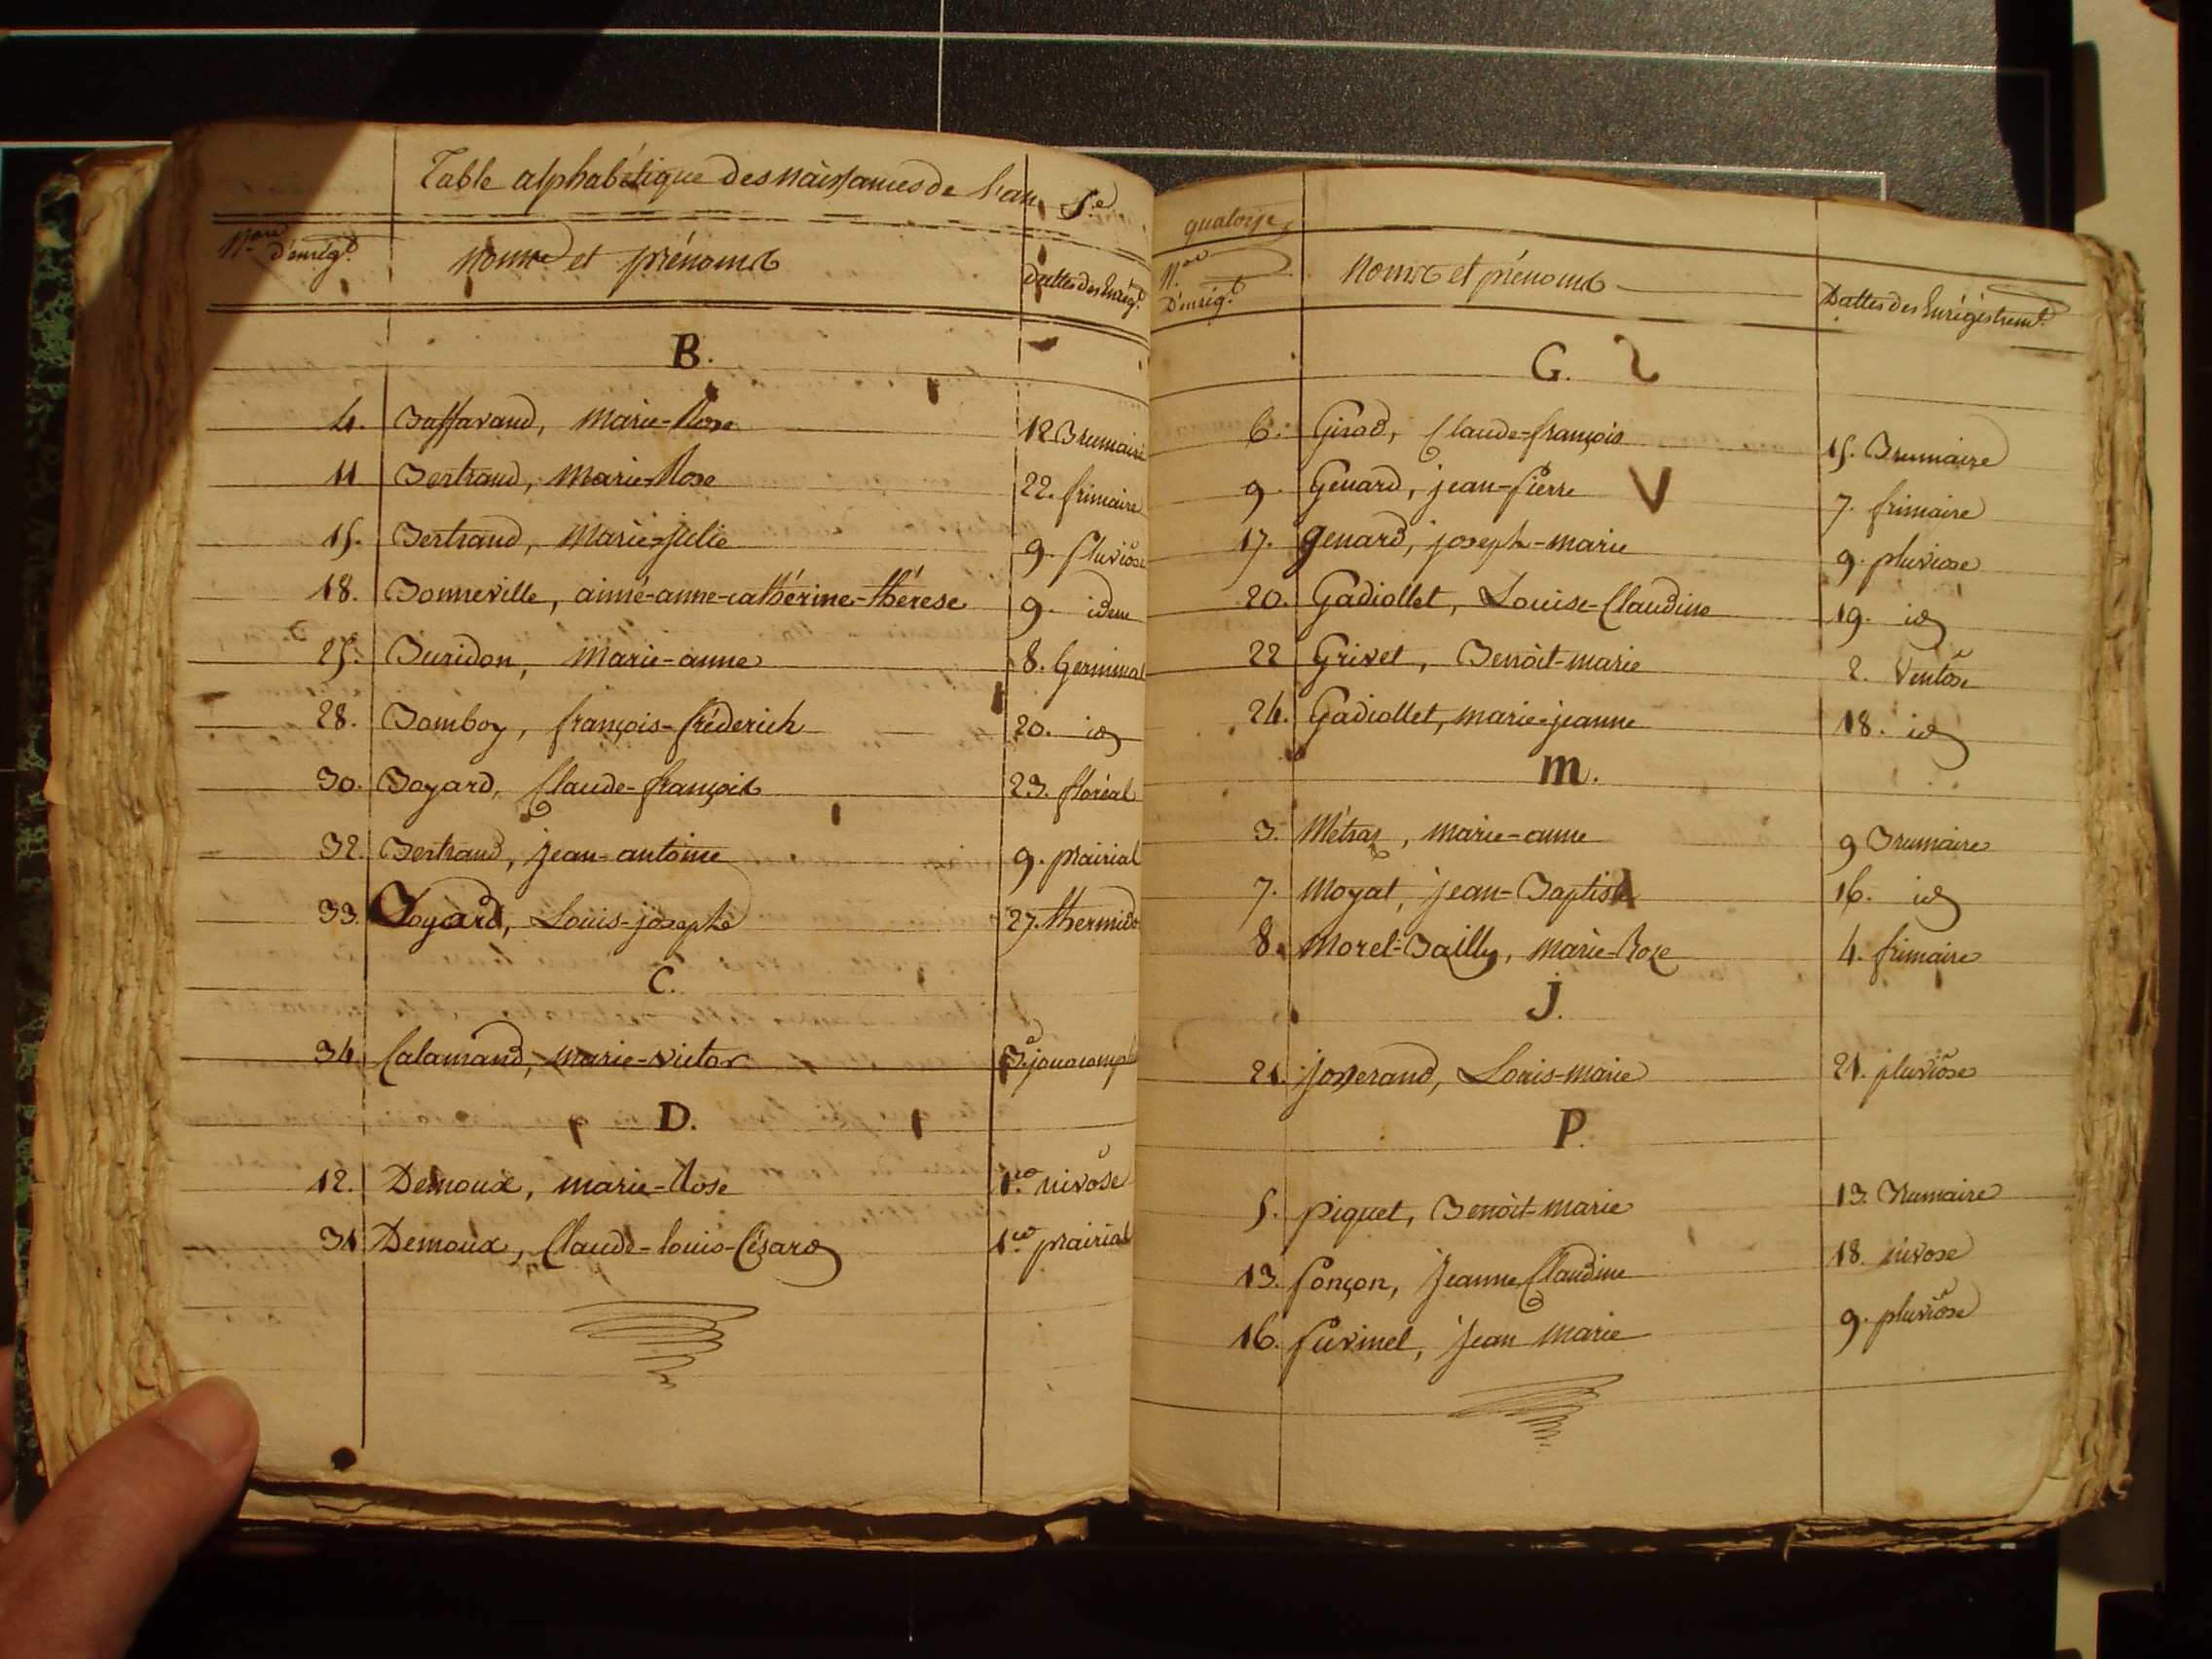 Table alphabétique des naissances de l'an
N.are d'enrég.t
noms et prénoms
Dattes des Enrég.t
B.
4. Baffavand, Marie-Rose 12 Brumaire
11 Bertrand, Marie-Rose 22. frimaire
15. Bertrand, Marie-julie 9. pluviose
18. Bonneville, aimé-anne-cathérine-thérese 9. idem
25. Buridon, Marie-anne 8. Germinal
28. Bomboy, françois-fréderich 20. id
30. Boyard, Claude-françois 23. floréal
32. Bertrand, jean-antoine 9. prairial
33. Boyard, Louis-joseph 27. thermido
C.
34. Calamand, marie-victor 3.e jour compl
D.
12. Demoux, marie-Rose 1.er nivose
31 Demoux, Claude-louis-Césard 1.er prairial
quatorze
N.ro D'enrég.t
Noms et prénoms
Dattes des Enrégistrem.t
G.
6. Girod, Claude-françois 15. Brumaire
9. Genard, jean-pierre 7. frimaire
17. genard, joseph-marie 9. pluviose
20. Gadiollet, Louise-Claudine 19. id
22 Grivet, Benoit-marie 2. Ventose
24. Gadiollet, marie-jeanne 18. id
m.
3. Métraz, marie-anne 9 Brumaire
7. Moyat, jean-Baptiste 16. id
8. Morel-Bailly, Marie-Roze 4. frimaire
J.
21. josserand, Louis-marie 21. pluviose
P.
5. piquet, Benoit-marie 13. Brumaire
13. ponçon, Jeanne Claudine 18. nivose
16. puvinel, Jean Marie 9. pluviose